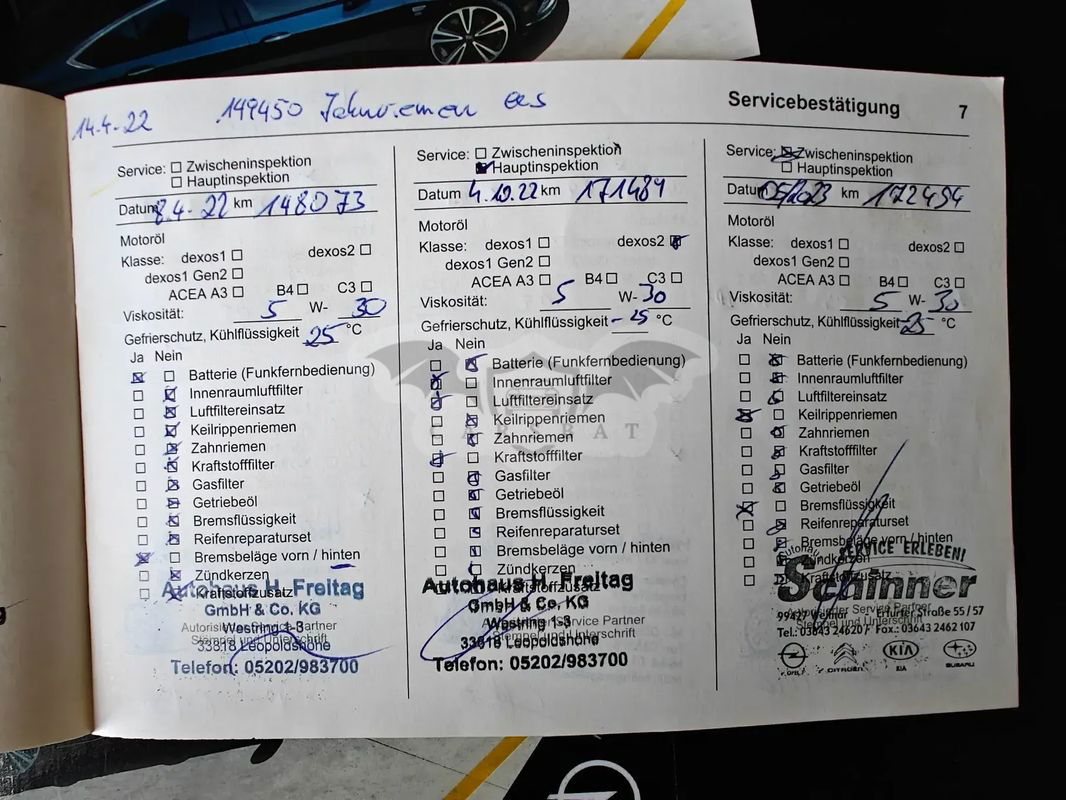 14.4.22 149450 Zahnriemen ers
Servicebestätigung 7
Service: Zwischeninspektion
Hauptinspektion
Datum 8.4.22 km 148073
Motoröl
Klasse: dexos1 dexos2
dexos1 Gen2
ACEA A3 B4 C3
Viskosität: 5 W- 30
Gefrierschutz, Kühlflüssigkeit 25 °C
Ja Nein
Batterie (Funkfernbedienung)
Innenraumluftfilter
Luftfiltereinsatz
Keilrippenriemen
Zahnriemen
Kraftstofffilter
Gasfilter
Getriebeöl
Bremsflüssigkeit
Reifenreparaturset
Bremsbeläge vorn / hinten
Zündkerzen
Kraftstoffzusatz
Autohaus H. Freitag
GmbH & Co. KG
Westring 1-3
Autorisierter Service Partner
Stempel und Unterschrift
33818 Leopoldshöhe
Telefon: 05202/983700
Service: Zwischeninspektion
Hauptinspektion
Datum 4.10.22 km 171484
Motoröl
Klasse: dexos1 dexos2
dexos1 Gen2
ACEA A3 B4 C3
Viskosität: 5 W- 30
Gefrierschutz, Kühlflüssigkeit - 25 °C
Ja Nein
Batterie (Funkfernbedienung)
Innenraumluftfilter
Luftfiltereinsatz
Keilrippenriemen
Zahnriemen
Kraftstofffilter
Gasfilter
Getriebeöl
Bremsflüssigkeit
Reifenreparaturset
Bremsbeläge vorn / hinten
Zündkerzen
Kraftstoffzusatz
Autohaus H. Freitag
GmbH & Co. KG
Westring 1-3
Autorisierter Service Partner
Stempel und Unterschrift
33818 Leopoldshöhe
Telefon: 05202/983700
Service: Zwischeninspektion
Hauptinspektion
Datum 05/2023 km 172494
Motoröl
Klasse: dexos1 dexos2
dexos1 Gen2
ACEA A3 B4 C3
Viskosität: 5 W- 30
Gefrierschutz, Kühlflüssigkeit -25 °C
Ja Nein
Batterie (Funkfernbedienung)
Innenraumluftfilter
Luftfiltereinsatz
Keilrippenriemen
Zahnriemen
Kraftstofffilter
Gasfilter
Getriebeöl
Bremsflüssigkeit
Reifenreparaturset
Bremsbeläge vorn / hinten
Zündkerzen
Kraftstoffzusatz
Autohaus SERVICE ERLEBEN!
Schinner
Autorisierter Service Partner
Stempel und Unterschrift
99427 Weimar Erfurter Straße 55 / 57
Tel.: 03643 24620 / Fax.: 03643 2462 107
OPEL CITROËN KIA SUBARU
CARSBAT